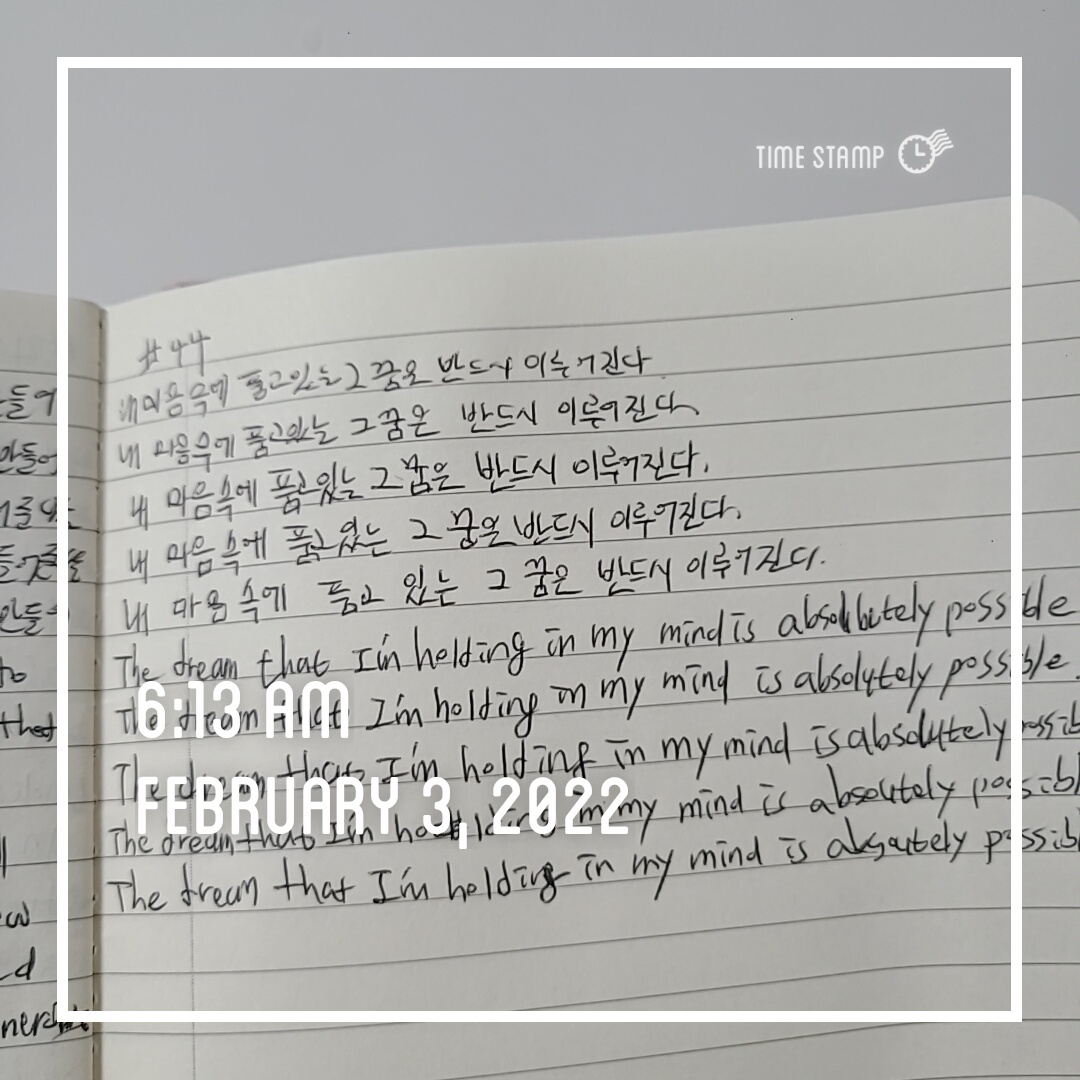 TIME STAMP
#44
내 마음속에 품고있는 그 꿈은 반드시 이루어진다
내 마음속에 품고있는 그 꿈은 반드시 이루어진다.
내 마음속에 품고있는 그 꿈은 반드시 이루어진다.
내 마음속에 품고있는 그 꿈은 반드시 이루어진다.
내 마음 속에 품고 있는 그 꿈은 반드시 이루어진다.
The dream that I'm holding in my mind is possible
The dream that I'm holding in my mind is absolutely possible.
The dream that I'm holding in my mind is absolutely
The dream that I'm in my mind is absolutely
The dream that I'm holding in my mind is
6:13 AM
FEBRUARY 3, 2022
만들어
to
that